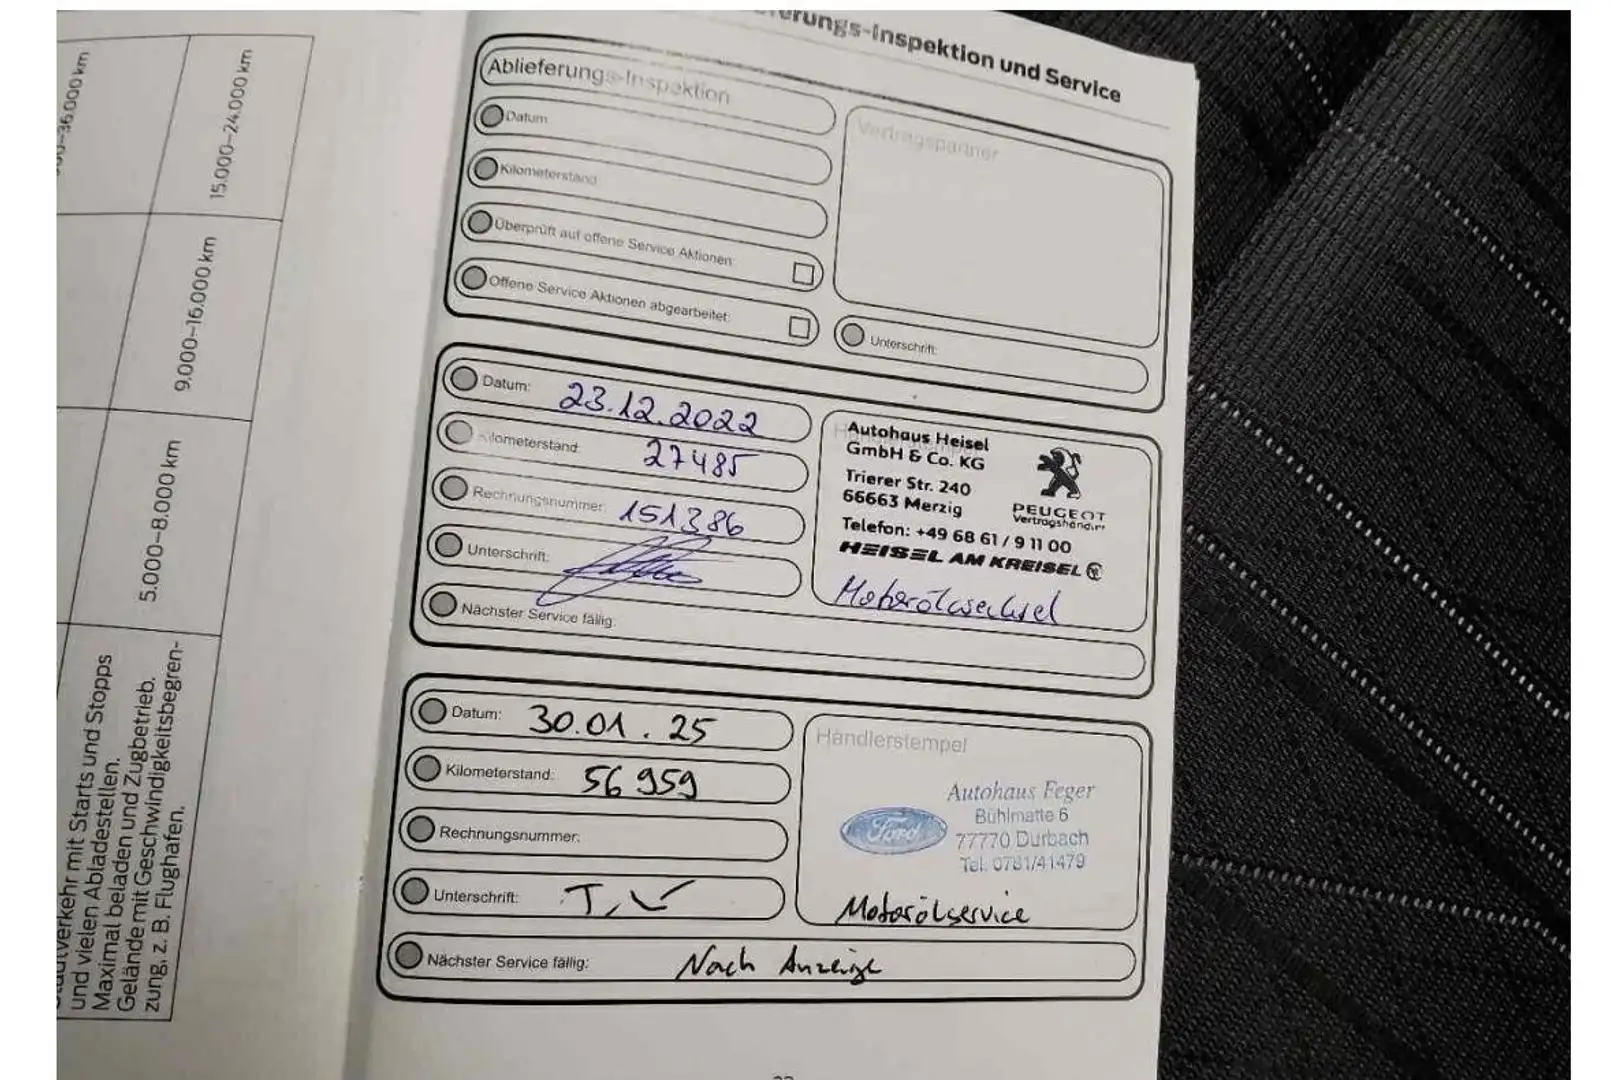 15.000–24.000 km
9.000–16.000 km
5.000–8.000 km
und vielen Abladestellen.
Maximal beladen und Zugbetrieb.
Gelände mit Geschwindigkeitsbegren-
zung, z. B. Flughafen.
verkehr mit Starts und Stopps
-36.000 km
erungs-Inspektion und Service
Ablieferungs-Inspektion
Datum
Kilometerstand
Überprüft auf offene Service Aktionen:
Offene Service Aktionen abgearbeitet:
Vertragspartner
Unterschrift:
Datum: 23.12.2022
Kilometerstand: 27485
Rechnungsnummer: 151386
Unterschrift:
Nächster Service fällig:
Autohaus Heisel
GmbH & Co. KG
Trierer Str. 240
66663 Merzig
Telefon: +49 68 61 / 9 11 00
HEISEL AM KREISEL
PEUGEOT
Vertragshändler
Motorölwechsel
Datum: 30.01.25
Kilometerstand: 56959
Rechnungsnummer:
Unterschrift:
Nächster Service fällig: Nach Anzeige
Händlerstempel
Ford
Autohaus Feger
Bühlmatte 6
77770 Durbach
Tel. 0781/41479
Motorölservice